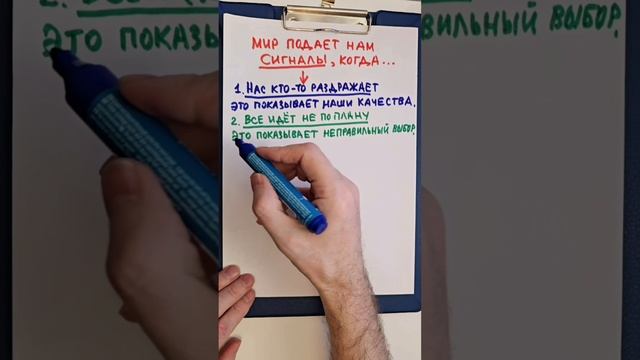 МИР ПОДАЕТ НАМ
СИГНАЛЫ, КОГДА...
1. НАС КТО-ТО РАЗДРАЖАЕТ
ЭТО ПОКАЗЫВАЕТ НАШИ КАЧЕСТВА.
2. ВСЕ ИДЁТ НЕ ПО ПЛАНУ
ЭТО ПОКАЗЫВАЕТ НЕПРАВИЛЬНЫЙ ВЫБОР.